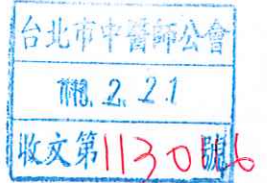 台北市中醫師公會
113. 2. 21
收文第1130566號